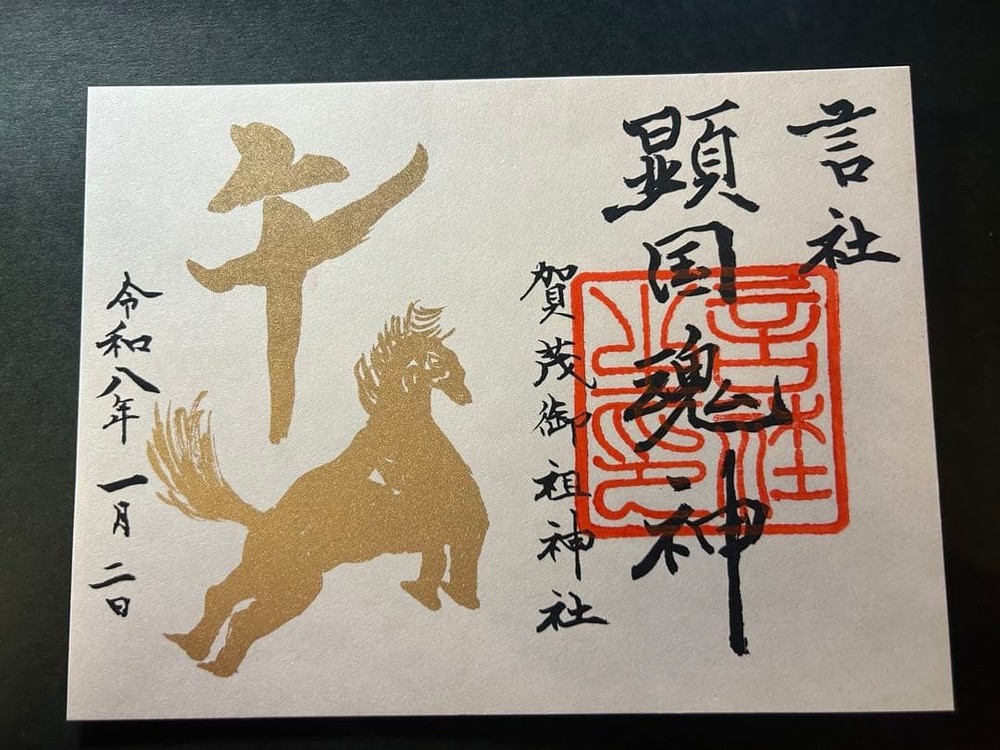 言社
顕国魂神
賀茂御祖神社
午
令和八年 一月 二日
言社之印